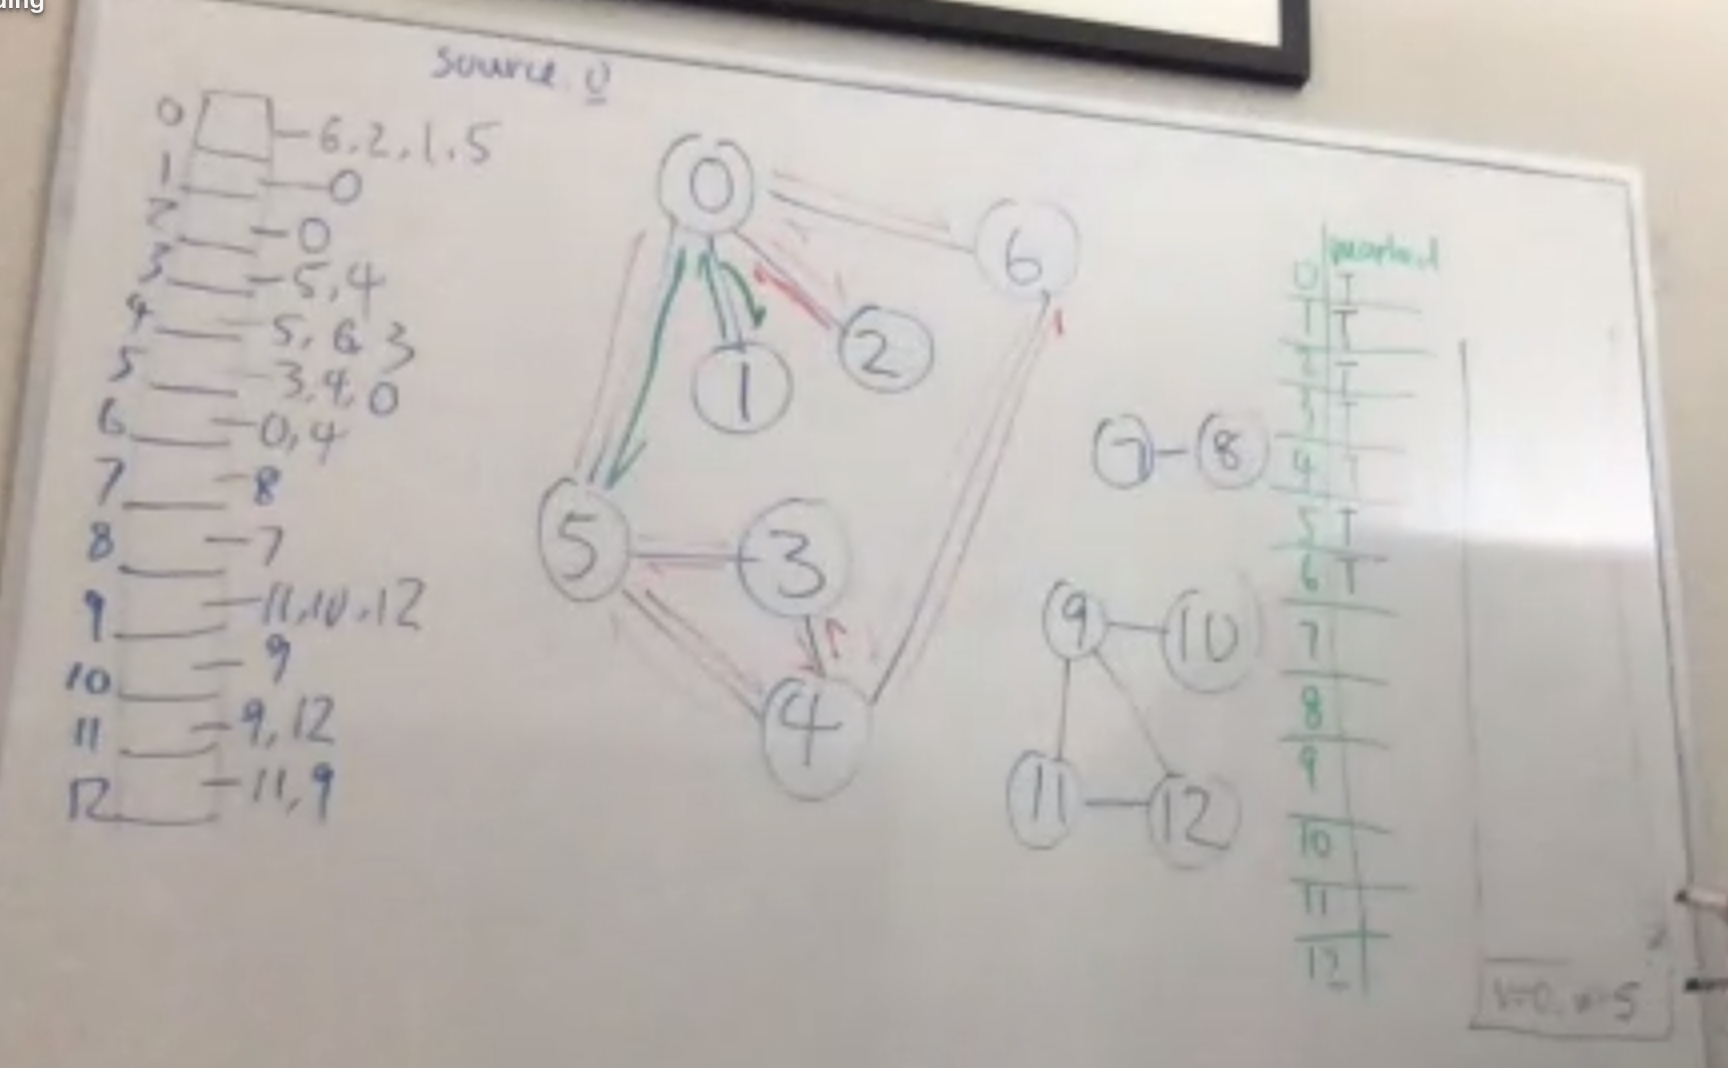 source. 0
0 6,2,1,5
1 0
2 0
3 5,4
4 5,6 3
5 3,4,0
6 0,4
7 8
8 7
9 11,10,12
10 9
11 9,12
12 11,9
0
6
1
2
5
3
4
7
8
9
10
11
12
marked
0 T
1 T
2 T
3 T
4 T
5 T
6 T
7
8
9
10
11
12
v=0, w=5